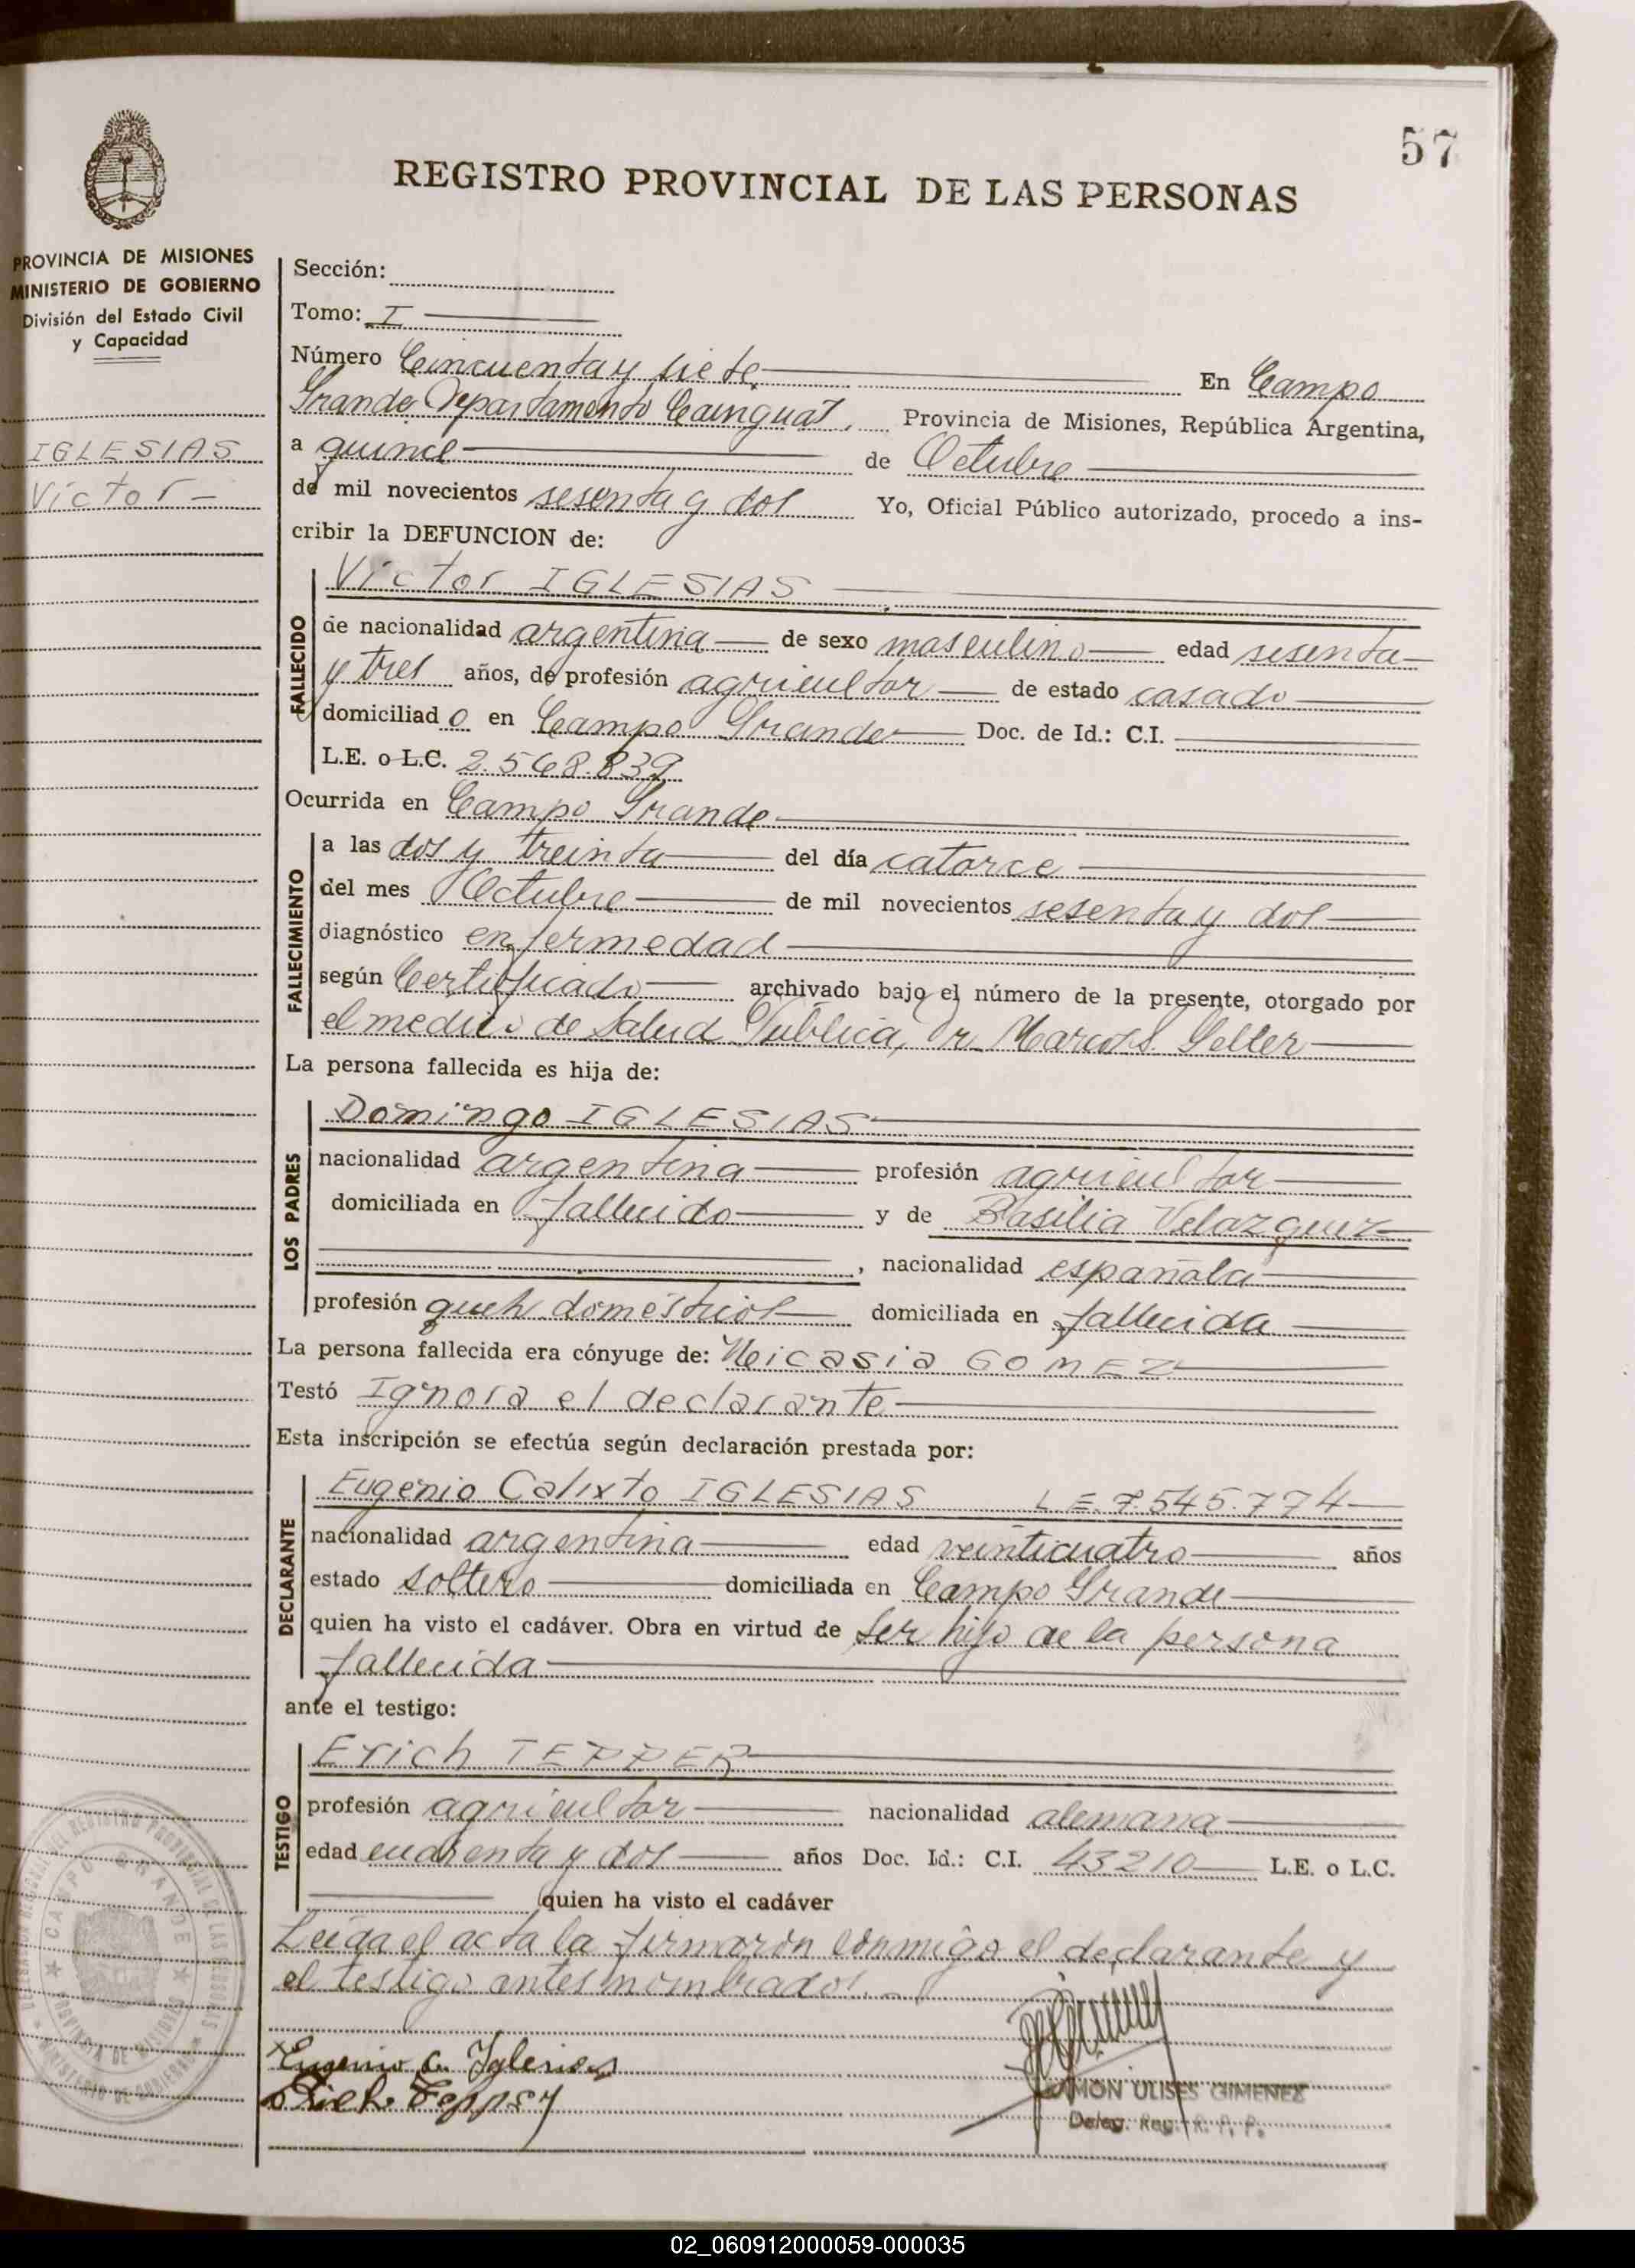 57
REGISTRO PROVINCIAL DE LAS PERSONAS
PROVINCIA DE MISIONES
MINISTERIO DE GOBIERNO
División del Estado Civil
y Capacidad
IGLESIAS
Victor
Sección:
Tomo: I
Número Cincuenta y siete En Campo
Grande Departamento Cainguas, Provincia de Misiones, República Argentina,
a quince de Octubre
de mil novecientos sesenta y dos Yo, Oficial Público autorizado, procedo a ins-
cribir la DEFUNCION de:
FALLECIDO
Victor IGLESIAS
de nacionalidad argentina de sexo masculino edad sesenta
y tres años, de profesión agricultor de estado casado
domiciliado en Campo Grande Doc. de Id.: C.I.
L.E. o L.C. 2.568.839
Ocurrida en Campo Grande
FALLECIMIENTO
a las dos y treinta del día catorce
del mes Octubre de mil novecientos sesenta y dos
diagnóstico enfermedad
según Certificado archivado bajo el número de la presente, otorgado por
el medico de Salud Publica, Dr. Marcos Geller
La persona fallecida es hija de:
LOS PADRES
Domingo IGLESIAS
nacionalidad argentina profesión agricultor
domiciliada en fallecido y de Basilia Velazquez
, nacionalidad española
profesión queh. domésticos domiciliada en fallecida
La persona fallecida era cónyuge de: Neicasia GOMEZ
Testó Ignora el declarante
Esta inscripción se efectúa según declaración prestada por:
DECLARANTE
Eugenio Calixto IGLESIAS L.E. 7.545.774
nacionalidad argentina edad veinticuatro años
estado soltero domiciliada en Campo Grande
quien ha visto el cadáver. Obra en virtud de ser hijo de la persona
fallecida
ante el testigo:
TESTIGO
Erich TEPPER
profesión agricultor nacionalidad alemana
edad cuarenta y dos años Doc. Id.: C.I. 43210 L.E. o L.C.
quien ha visto el cadáver
Leida el acta la firmaron conmigo el declarante y
el testigo antes nombrados.
Eugenio C. Iglesias
Erich Tepper
RAMON ULISES GIMENEZ
Deleg. Reg. R. P. P.
CAMPO GRANDE
PROVINCIA DE MISIONES
MINISTERIO DE GOBIERNO
02_060912000059-000035